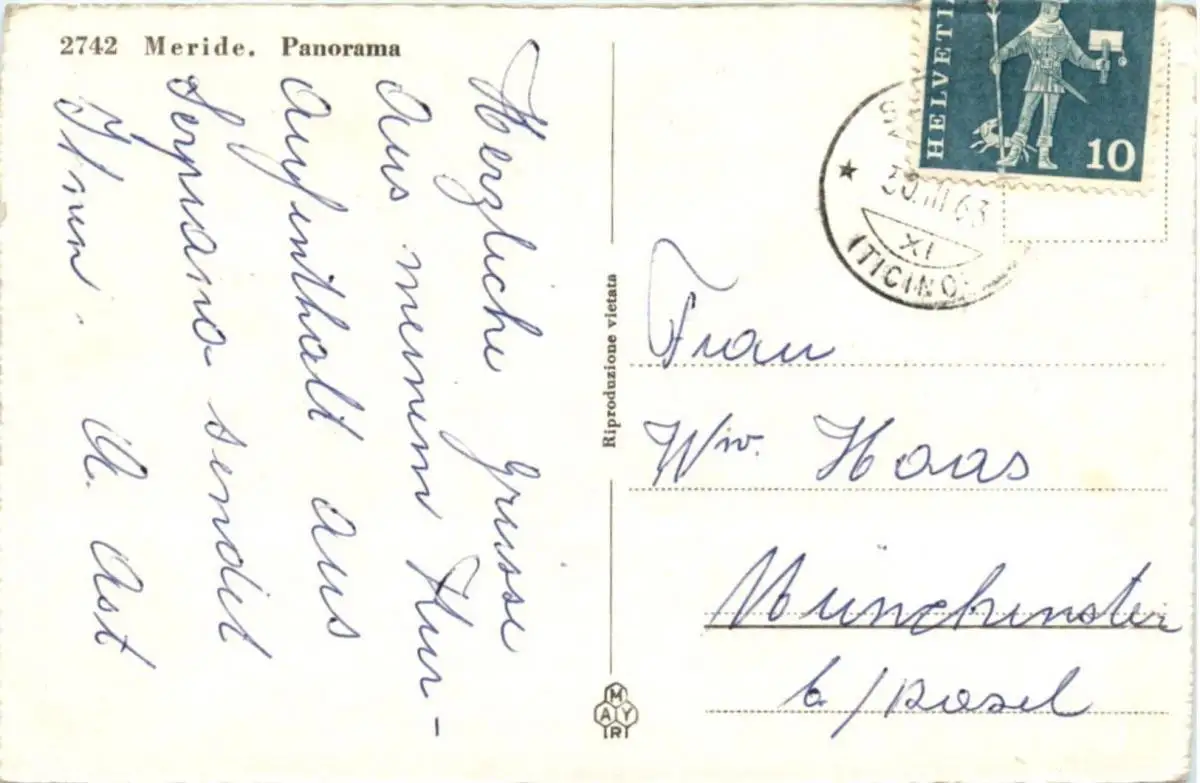 2742 Meride. Panorama
Herzliche Grüsse
Aus meinem Kur-
aufenthalt aus
Serpiano sendet
Ihnen. A. Ast
Riproduzione vietata
MAYR
HELVETIA
10
30.III.63
XI
(TICINO)
Frau
Ww. Haas
Münchenstein
b/Basel